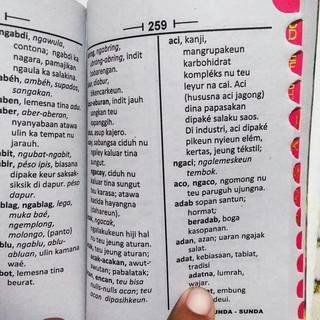 ngabdi, ngawula,
contona; ngabdi ka
nagara, pamajikan
ngaula ka salakina.
abéh, ambéh, supados,
sangakan.
aben, lemesna tina adu.
aber, aber-aberan,
nyanyabaan atawa
ulin ka tempat nu
jarauh.
abit, ngubat-ngabit,
abir, péso ipis, biasana
dipaké keur saksak-
siksik di dapur. péso
dapur.
ablag, ngablag, lego,
muka baé,
ngemplong,
molongo, (panto)
ablu, ngablu, ablu-
abluan, ulin kamana
waé.
abot, lemesna tina
beurat.
ngobring,
abring-abring, indit
babarengan.
aburan, indit jauh
sangkan teu
sanggih.
asup kajero.
sabangsa ciduh nu
ngley kaluar tina
sungut.
ngacay, ciduh nu
kaluar tina sungut
teu karasa; atawa
kacida hayangna
(dahareun).
ngacak,
ngalakukeun hiji hal
nu teu jeung aturan.
teu jeung aturan.
acak-acakan, awut-
awutan; pabalatak;
acan, encan, teu bisa
nulis-nulis acan; teu
acan dipasihkeun.
259
aci, kanji,
mangrupakeun
karbohidrat
kompléks nu teu
leyur na cai. Aci
(hususna aci jagong)
dina papasakan
dipaké salaku saos.
Di industri, aci dipaké
pikeun nyieun elém,
kertas, jeung tékstil;
ngaci; ngalemeskeun
tembok.
aco, ngaco, ngomong nu
teu paruguh ujungna.
adab sopan santun;
hormat;
beradab, boga
kasopanan.
adan, azan; uaran ngajak
salat.
adat, kebiasaan, tabiat,
tradisi
adatna, lumrah,
wajar.
embung
deui.
SUNDA - SUNDA